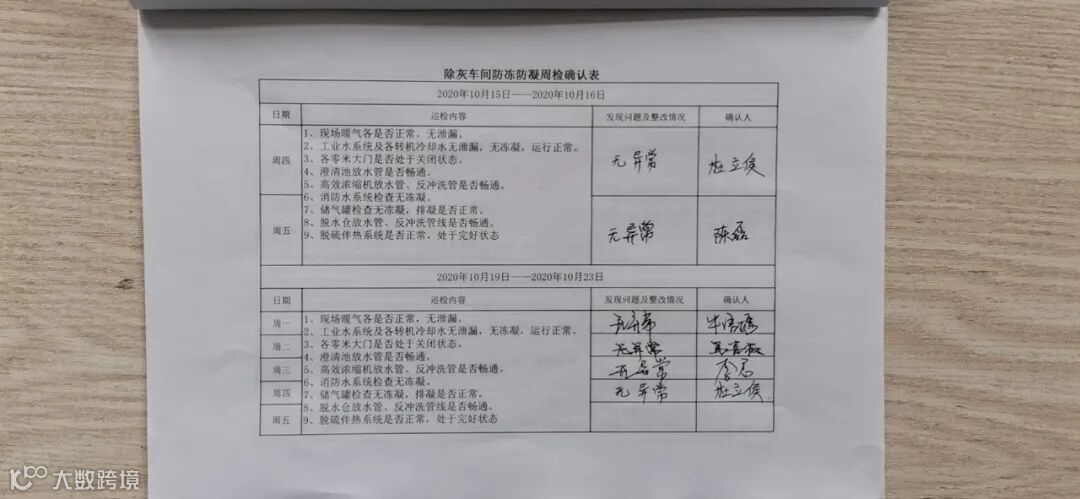 除灰车间防冻防凝周检确认表
2020年10月15日——2020年10月16日
日期 巡检内容 发现问题及整改情况 确认人
周四 无异常 杜立俊
1、现场暖气各是否正常，无泄漏。
2、工业水系统及各转机冷却水无泄漏，无冻凝，运行正常。
3、各零米大门是否处于关闭状态。
4、澄清池放水管是否畅通。
5、高效浓缩机放水管、反冲洗管是否畅通。
6、消防水系统检查无冻凝。
7、储气罐检查无冻凝，排凝是否正常。
8、脱水仓放水管、反冲洗管线是否畅通。
9、脱硫伴热系统是否正常，处于完好状态
周五 无异常 陈磊
2020年10月19日——2020年10月23日
日期 巡检内容 发现问题及整改情况 确认人
周一 无异常
1、现场暖气各是否正常，无泄漏。
2、工业水系统及各转机冷却水无泄漏，无冻凝，运行正常。
周二 无异常
3、各零米大门是否处于关闭状态。
4、澄清池放水管是否畅通。
周三 无异常 李君
5、高效浓缩机放水管、反冲洗管是否畅通。
6、消防水系统检查无冻凝。
周四 无异常 杜立俊
7、储气罐检查无冻凝，排凝是否正常。
8、脱水仓放水管、反冲洗管线是否畅通。
周五
9、脱硫伴热系统是否正常，处于完好状态
大数跨境